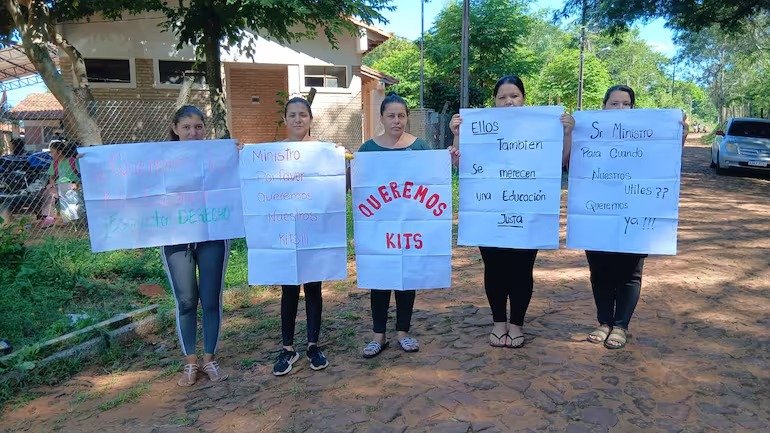 Es nuestro DERECHO
Ministro
Porfavor
Queremos
Nuestros
Kits!!!
QUEREMOS
KITS
Ellos
También
Se merecen
una Educación
Justa
Sr Ministro
Para Cuando
Nuestros
Utiles??
Queremos
ya!!!